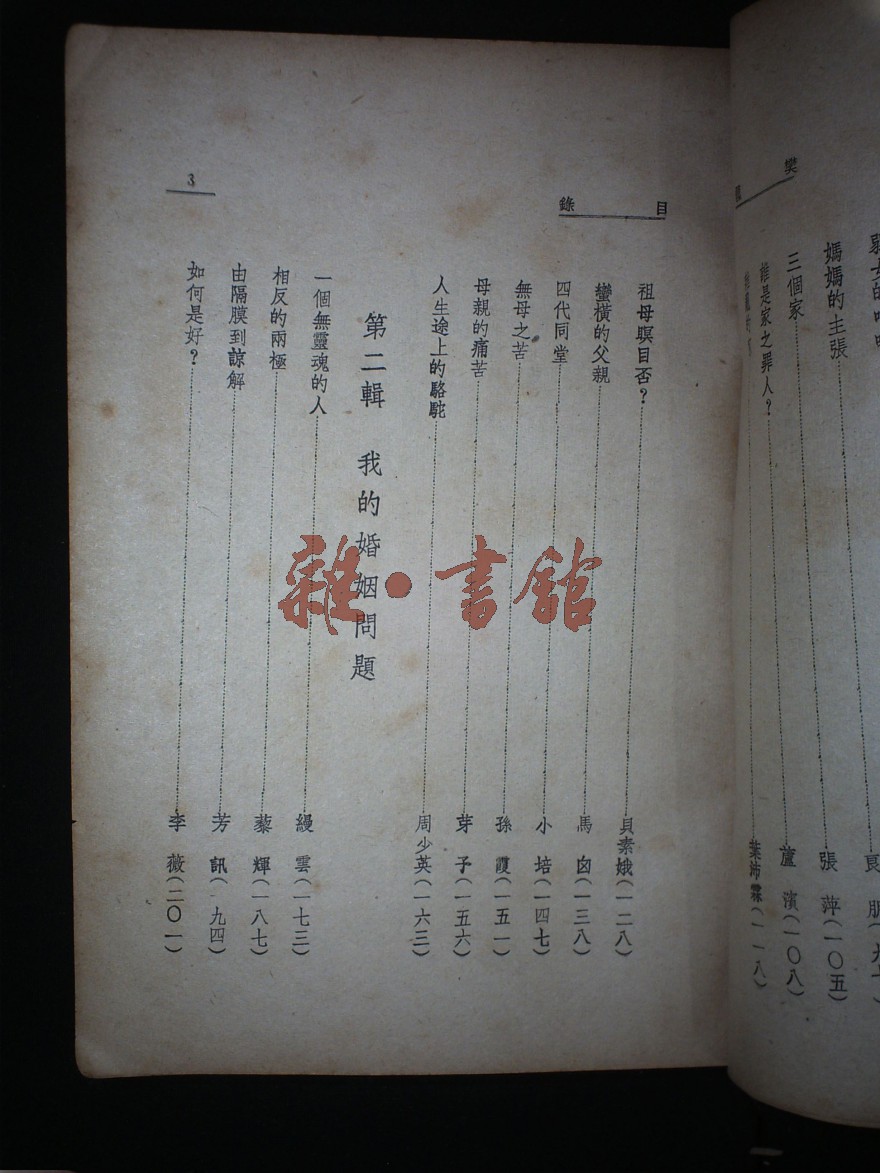 樊
媽媽的主張……張 萍(一〇五)
三個家……蘆 濱(一〇八)
誰是家之罪人?……葉沛霖(一一八)
目錄
祖母瞑目否?……貝素娥(一二八)
蠻橫的父親……馬 囪(一三八)
四代同堂……小 培(一四七)
無母之苦……孫 霞(一五一)
母親的痛苦……芽 子(一五六)
人生途上的駱駝……周少英(一六三)
第二輯 我的婚姻問題
一個無靈魂的人……縵 雲(一七三)
相反的兩極……藜 輝(一八七)
由隔膜到諒解……芳 訊(一九四)
如何是好?……李 薇(二〇一)
3
雜·書館